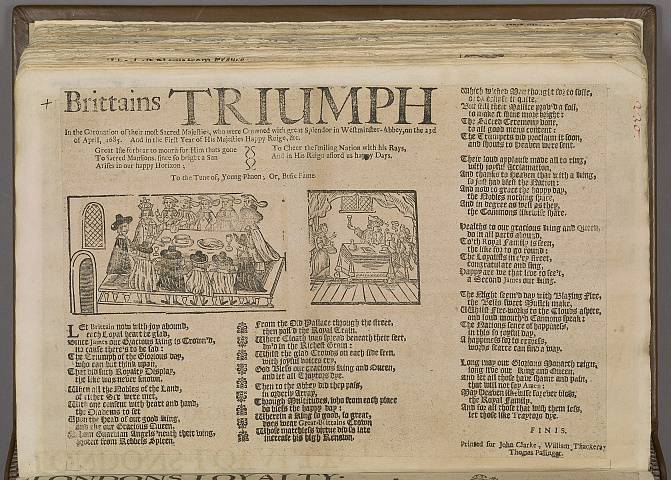 Brittains TRIUMPH
In the Coronation of their most Sacred Majesties, who were Crowned with great Splendor in Westminster-Abbey, on the 23d
of April, 1685. And in the First Year of His Majesties Happy Reign, &c.
Great Isle forbear to mourn for Him thats gone
To Sacred Mansions, since so bright a Sun
Arises in our happy Horizon;
To Cheer the smiling Nation with his Rays,
And in His Reign afford us happy Days.
To the Tune of, Young Phaon; Or, Busie Fame.
LEt Brittain now with joy abound,
each Loyal heart be glad,
Since James our Gracious King is Crown'd,
no cause there's to be sad:
The Triumph of the Glorious day,
who can but think upon,
That did such Royalty Display,
the like was never known.
When all the Nobles of the Land,
of either Sex were met,
With one consent with heart and hand,
the Diadems to set
Upon the Head of our good King,
and the our Gracious Queen,
Whom Guardian Angels 'neath their wing,
Protect from Rebbels Spleen.
From the Old Pallace through the street,
then pass'd the Royal Train,
Where Cloath was spread beneath their feet,
Dy'd in the Richest Grain:
Whilst the glad Crowds on each side seen,
with joyful voices cry,
God Bless our Gracious King and Queen,
and let all Traytors dye.
Then to the Abbey did they pass,
in orderly Array,
Through Multitudes, who from each place
do bless the happy day:
Wherein a King so good, so great,
does wear Great-Brittains Crown
Whose matchless virtue did of late
increase his high Renown.
Which wicked Men thought for to foile,
or to eclipse it quite,
But still their Mallice prov'd a foil,
to make it shine more bright:
The Sacred Ceremony done,
to all good mens content:
The Trumpets did proclaim it soon,
and shouts to Heaven were sent.
Their loud applause made all to ring,
with joyful Acclamation,
And thanks to Heaven that with a King,
so just had blest the Nation:
And now to grace the happy day,
the Nobles nothing spare,
And in degree as well as they,
the Commons likewise share.
Healths to our gracious King and Queen,
do in all parts abound,
To th' Royal Family is seen,
the like for to go round:
The Loyallists in e'ry street,
congratulate and sing,
Happy are we that live to see't,
a Second James our King.
The Night seem'd day with Blazing Fire,
the Bells sweet Musick make,
Whilst Fire-works to the Clouds aspire,
and loud mouth'd Cannons speak:
The Nations sence of happiness,
in this so joyful day,
O happiness for to express,
words scarce can find a way.
Long may our Glorious Monarch reign,
long live our King and Queen,
And let all those have shame and pain,
that will not say Amen:
May Heaven likewise forever bless,
the Royal Family,
And for all those that wish them less,
let those like Traytors dye.
FINIS.
Printed for John Clarke, William Thackeray
Thomas Passinger.
LONDONS LOYALTY: